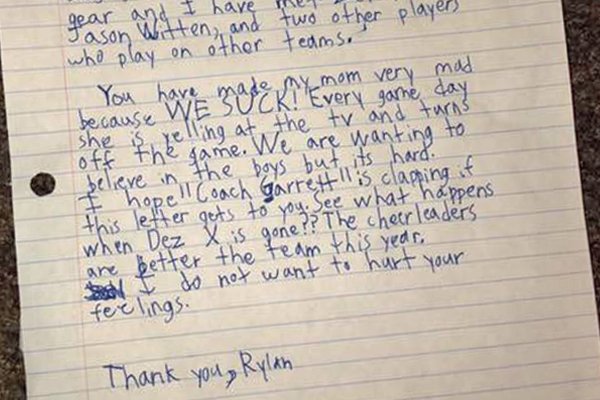 gear and I have met
Jason Witten, and two other players
who play on other teams.
You have made my mom very mad
because WE SUCK! Every game day
she is yelling at the tv and turns
off the game. We are wanting to
believe in the boys but its hard.
I hope "Coach Garrett" is clapping if
this letter gets to you. See what happens
when Dez X is gone?? The cheerleaders
are better the team this year.
I do not want to hurt your
feelings.
Thank you, Rylan